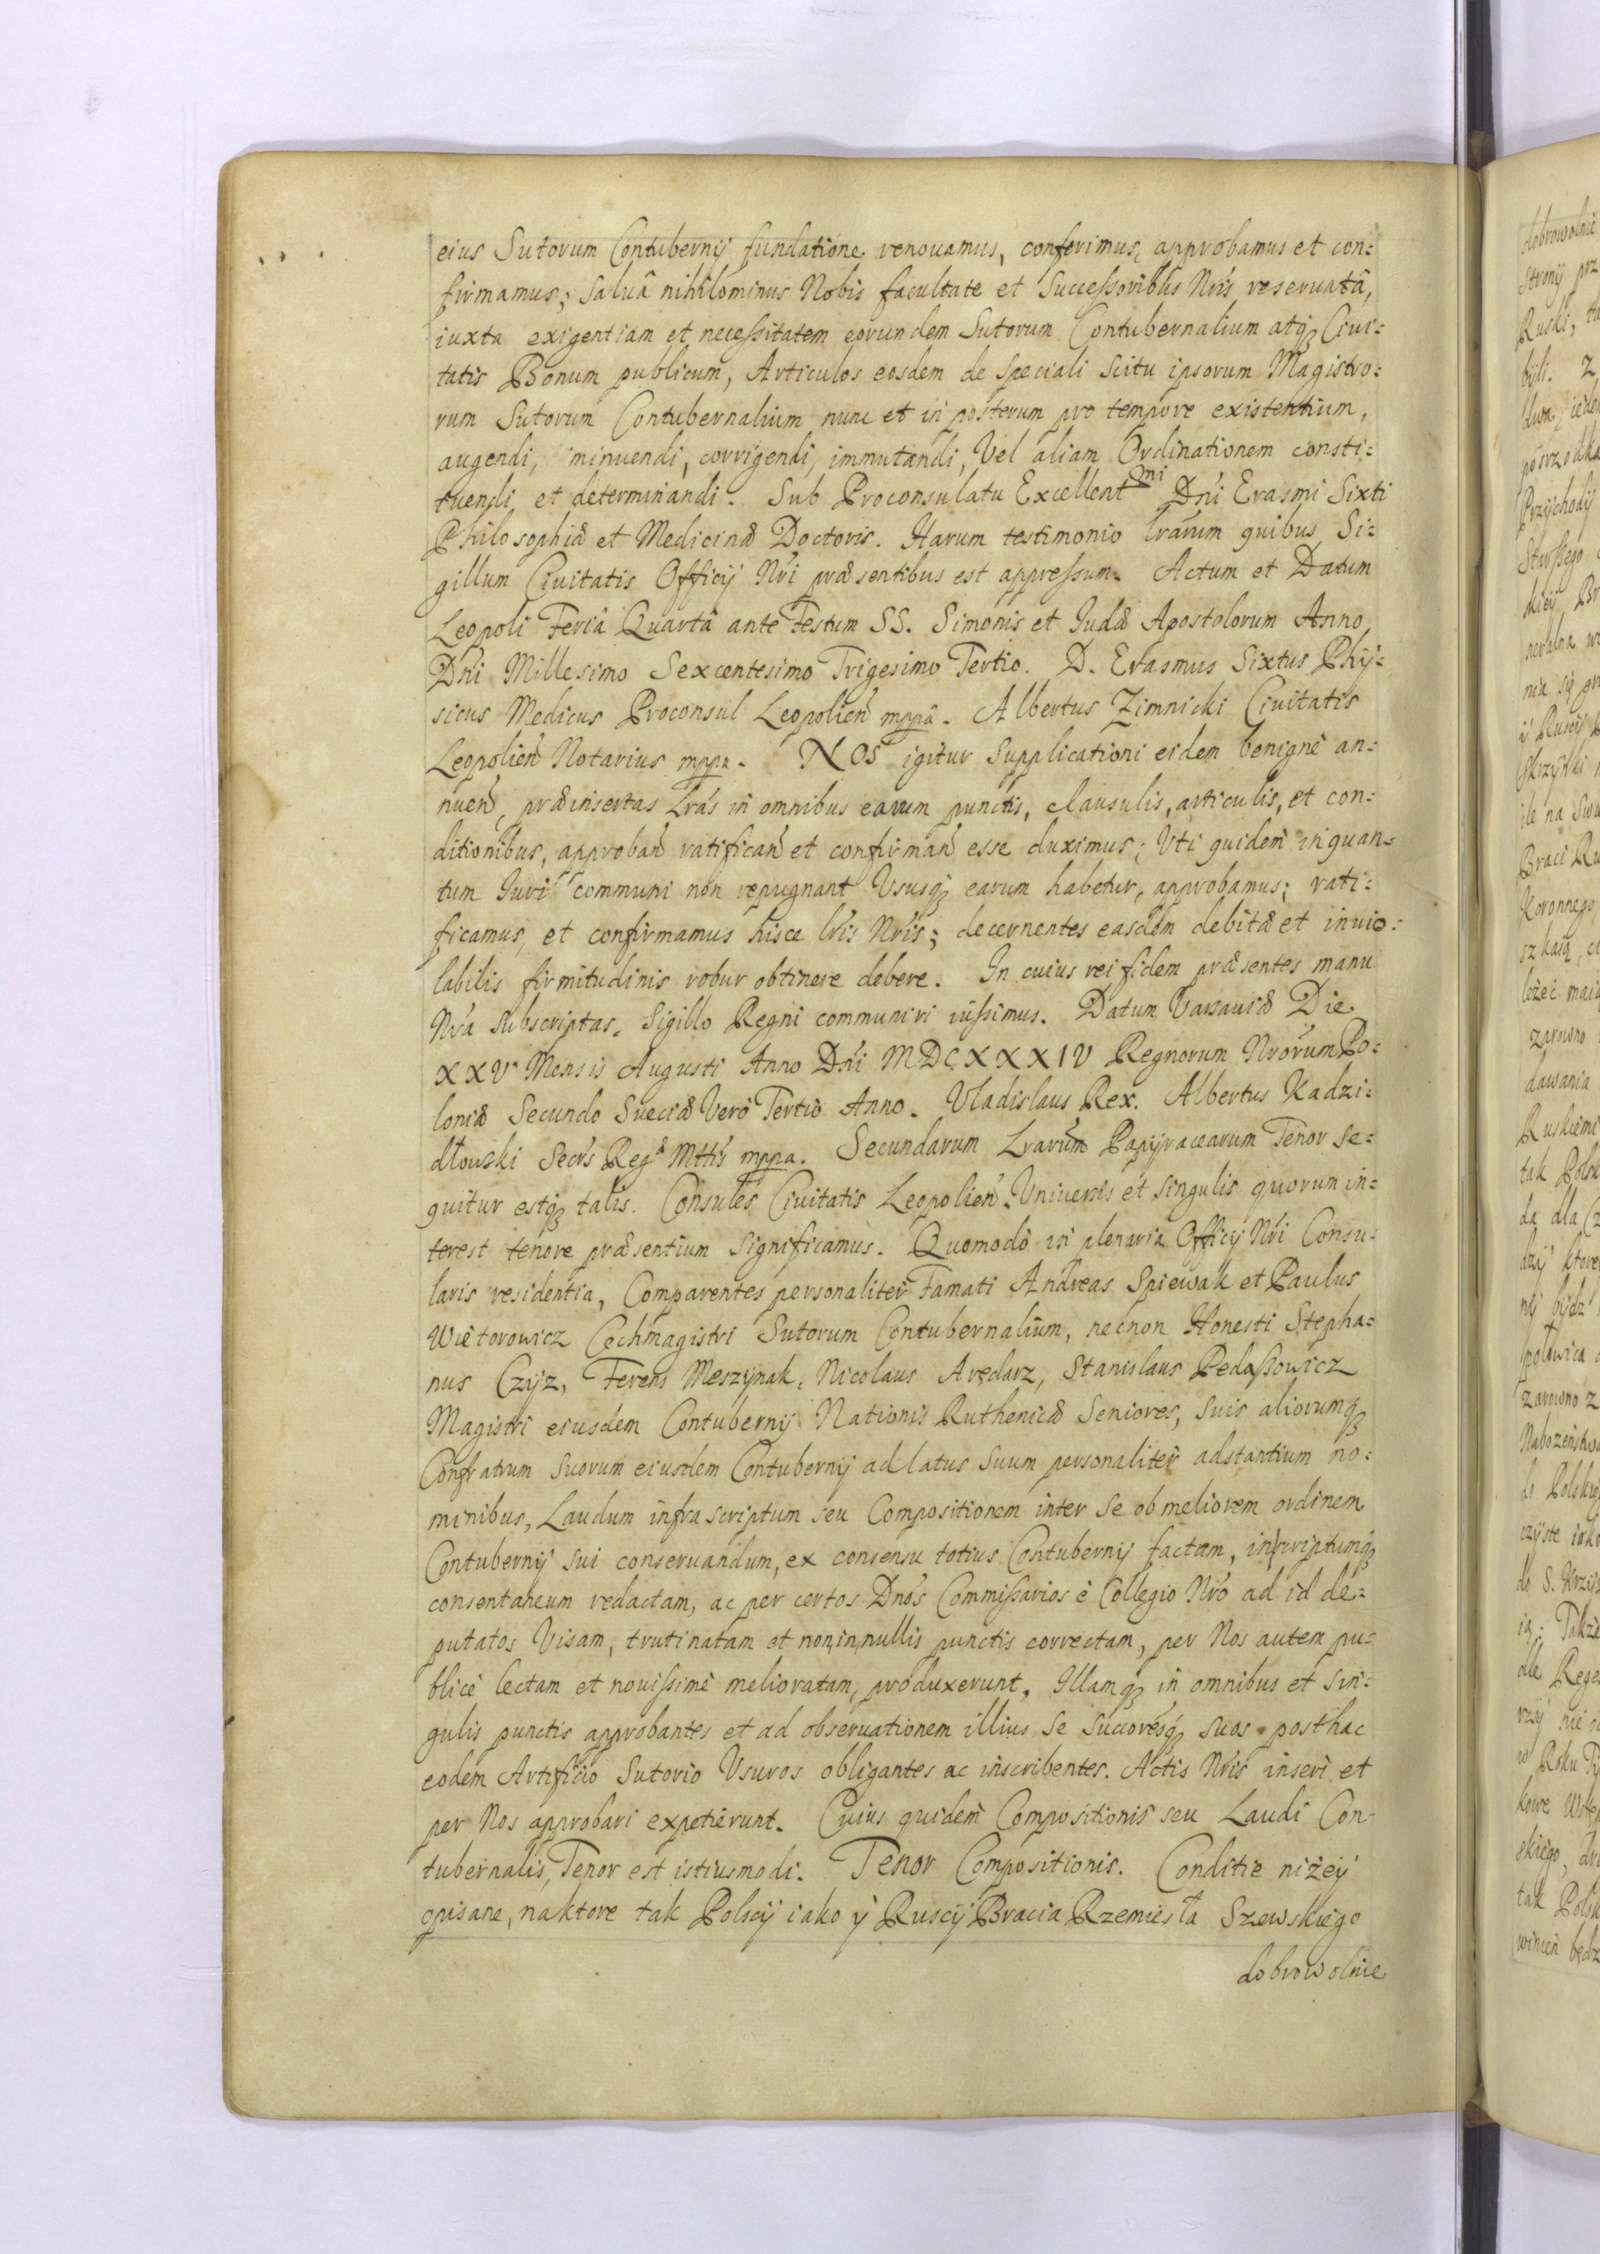 eius Sutorum Contubernij fundatione renouamus, conferimus, approbamus et con=
firmamus; saluâ nihilominus Nobis facultate et Successoribus Nris reseruatâ,
iuxta exigentiam et necessitatem eorundem Sutorum Contubernalium atq3 Ciui=
tatis Bonum publicum, Articulos eosdem de speciali scitu ipsorum Magistro=
rum Sutorum Contubernalium nunc et in posterum pro tempore existentium,
augendi, minuendi, corrigendi, immutandi, Vel aliam Ordinationem consti=
tuendi et determinandi. Sub Proconsulatu Excellentmi Dni Erasmi Sixti
Philosophiæ et Medicinæ Doctoris. Harum testimonio lrarum quibus Si=
gillum Ciuitatis Officij Nri præsentibus est appressum. Actum et Datum
Leopoli Feriâ Quartâ ante Festum SS. Simonis et Iudæ Apostolorum Anno
Dni Millesimo Sexcentesimo Trigesimo Tertio. D. Erasmus Sixtus Phij=
sicus Medicus Proconsul Leopolien mppâ. Albertus Zimnicki Ciuitatis
Leopolien Notarius mppa. NOS igitur supplicationi eidem benignè an=
nuen, præinsertas Lras in omnibus earum punctis, clausulis, articulis, et con=
ditionibus, approban ratifican et confirman esse duximus; Vti quidem inquan=
tum Iuri communi non repugnant Vsusq3 earum habetur, approbamus; rati=
ficamus, et confirmamus hisce lris Nris; decernentes easdem debitæ et inuio=
labilis firmitudinis robur obtinere debere. In cuius rei fidem præsentes manu
Nra subscriptas, Sigillo Regni communiri iussimus. Datum Varsauiæ Die
XXV Mensis Augusti Anno Dni MDCXXXIV Regnorum Nrorum Po=
loniæ Secundo Sueciæ Verò Tertio Anno. Vladislaus Rex. Albertus Kadzi=
dłouski Secrs Regæ Mttis mppa. Secundarum Lrarum Papijracearum Tenor se=
quitur estq3 talis. Consules Ciuitatis Leopolien. Vniuersis et singulis quorum in=
terest tenore præsentium significamus. Quomodò in plenaria Officij Nri Consu=
laris residentia, Comparentes personaliter Famati Andreas Spiewak et Paulus
Więtorowicz Cechmagistri Sutorum Contubernalium, necnon Honesti Stepha=
nus Czijz, Ferens Meszijnak, Nicolaus Arędarz, Stanislaus Pedassowicz
Magistri eiusdem Contubernij Nationis Ruthenicæ Seniores, suis aliorumq3
Confratrum suorum eiusdem Contubernij ad latus suum personaliter adstantium no=
minibus, Laudum infra scriptum seu Compositionem inter se ob meliorem ordinem
Contubernij sui conseruandum, ex consensu totius Contubernij factam, inscriptumq3
consentaneum redactam, ac per certos Dnos Commissarios è Collegio Nro ad id de=
putatos Visam, trutinatam et non, in, nullis punctis correctam, per Nos autem pu=
blicè lectam et nouissimè melioratam, produxerunt, Illamq3 in omnibus et sin=
gulis punctis approbantes et ad obseruationem illius se succoresq3 suos posthac
eodem Artificio Sutorio Vsuros obligantes ac inscribentes. Actis Nris inseri et
per Nos approbari expetierunt. Cuius quidem Compositionis seu Laudi Con-
tubernalis, Tenor est istiusmodi. Tenor Compositionis. Conditie niżeij
opisane, naktore tak Polscij iako ÿ Ruscij Bracia Rzemięsła Szewskiego
dobrowolnie